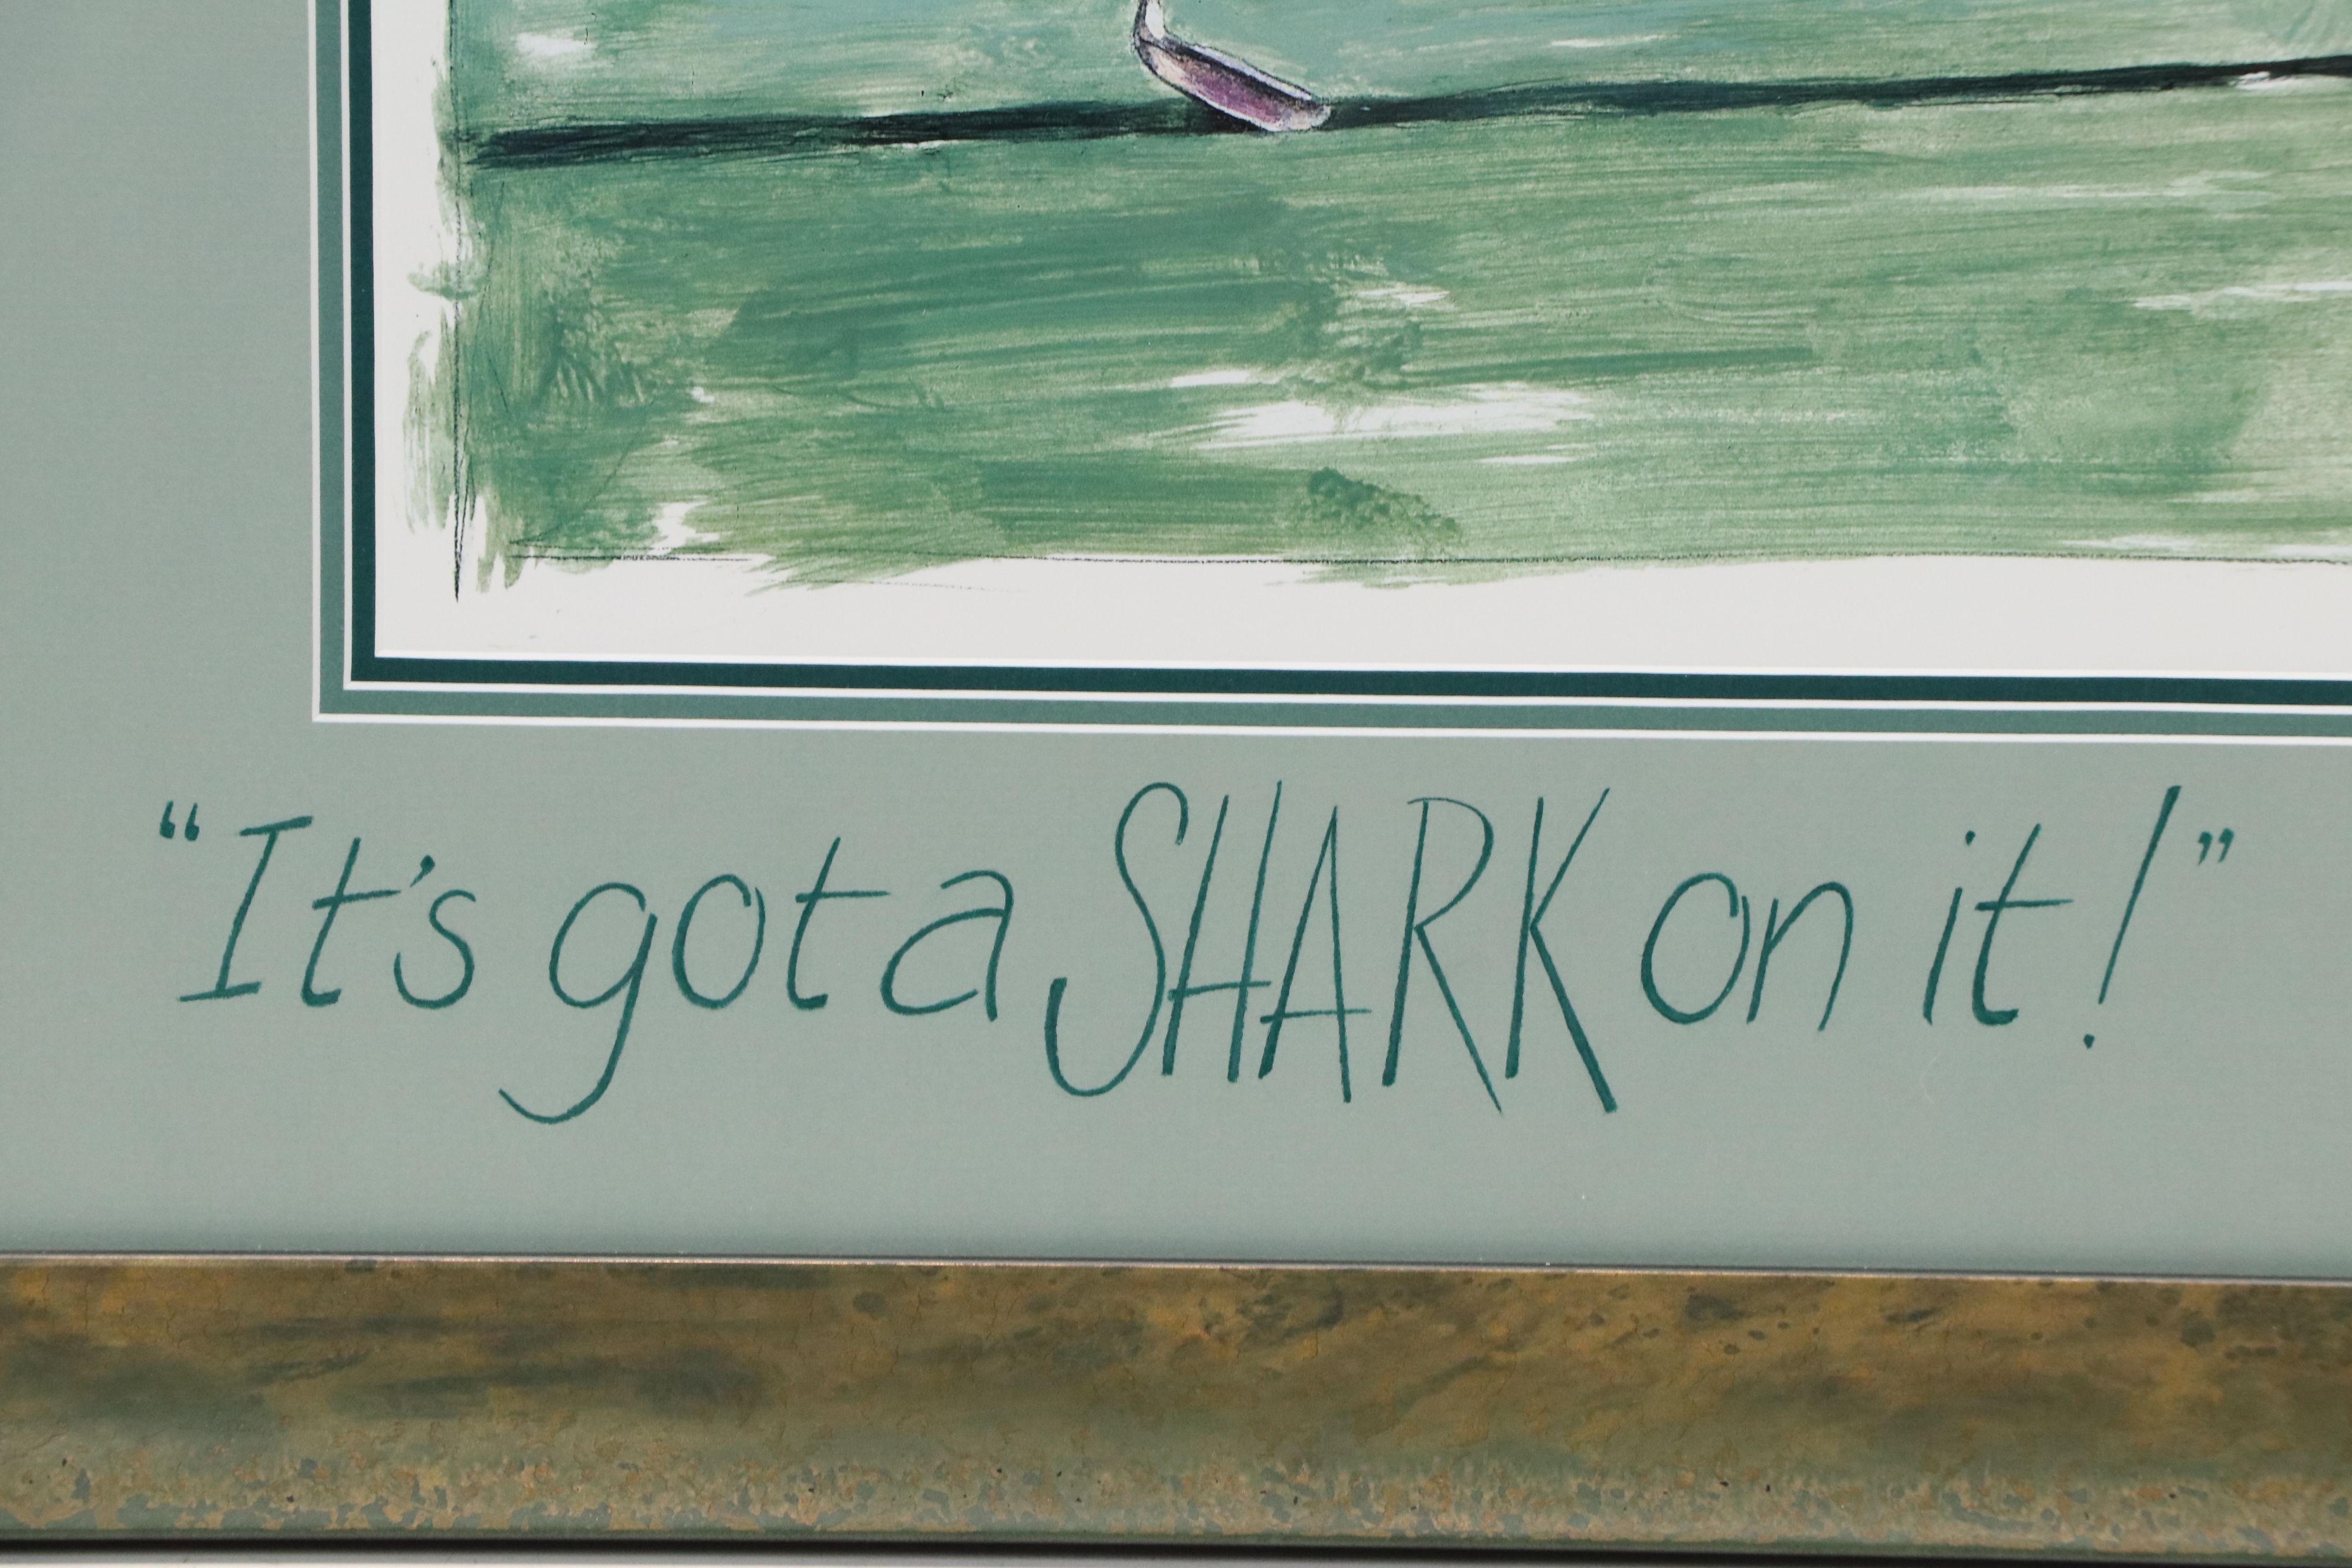 “It's got a SHARK on it!”